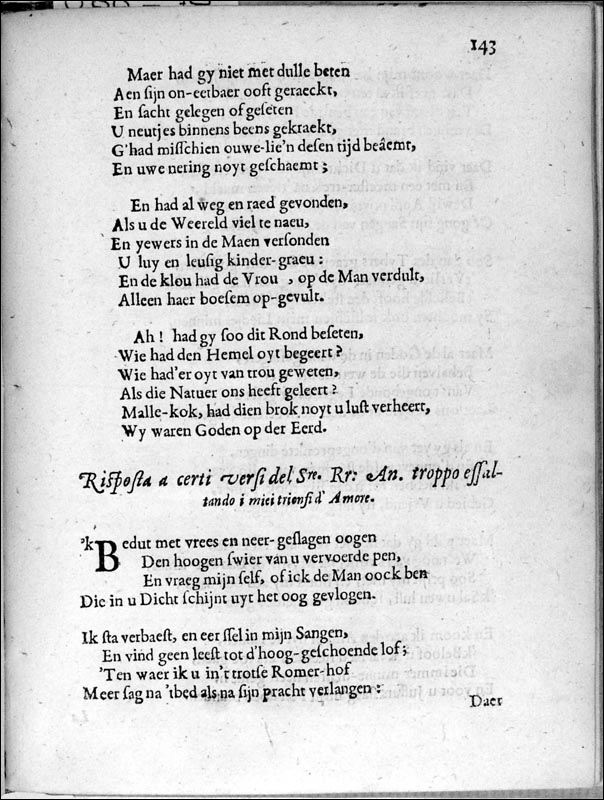 143
Maer had gy niet met dulle beten
Aen sijn on-eetbaer ooft geraeckt,
En sacht gelegen of geseten
U neutjes binnens beens gekraekt,
G'had misschien ouwe-lie'n desen tijd beâemt,
En uwe nering noyt geschaemt;
En had al weg en raed gevonden,
Als u de Weereld viel te naeu,
En yewers in de Maen versonden
U luy en leusig kinder-graeu:
En de klou had de Vrou , op de Man verdult,
Alleen haer boesem op-gevult.
Ah! had gy soo dit Rond beseten,
Wie had den Hemel oyt begeert?
Wie had'er oyt van trou geweten,
Als die Natuer ons heeft geleert?
Malle-kok, had dien brok noyt u lust verheert,
Wy waren Goden op der Eerd.
Risposta a certi versi del Sre. Rr: An. troppo essal-
tando i miei trionfi d'Amore.
'k Bedut met vrees en neer-geslagen oogen
Den hoogen swier van u vervoerde pen,
En vraeg mijn self, of ick de Man oock ben
Die in u Dicht schijnt uyt het oog gevlogen.
Ik sta verbaest, en eer ssel in mijn Sangen,
En vind geen leest tot d'hoog-geschoende lof;
'Ten waer ik u in't trotse Romer-hof
Meer sag na 'tbed als na sijn pracht verlangen:
Daer